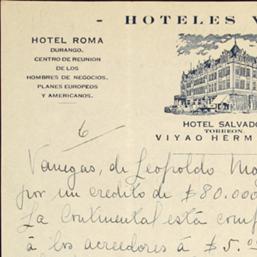 - HOTELES V
HOTEL ROMA
DURANGO.
CENTRO DE REUNION
DE LOS
HOMBRES DE NEGOCIOS.
PLANES EUROPEOS
Y AMERICANOS.
HOTEL SALVADO
TORREON.
VIYAO HERM
6
Vanegas, de Leopoldo Mo
por un credito de $80.000
La Continental está comp
á los acreedores á $5.0